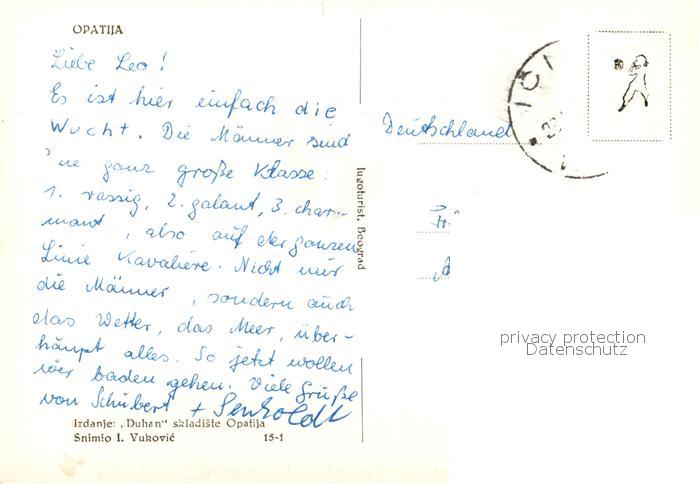 OPATIJA
Liebe Leo!
Es ist hier einfach die
Wucht. Die Männer sind
'ne ganz große Klasse:
1. rassig, 2. galant, 3. char-
mant, also auf der ganzen
Linie Kavaliere. Nicht nur
die Männer, sondern auch
das Wetter, das Meer, über-
haupt alles. So jetzt wollen
wir baden gehen. Viele Grüße
von Schubert +
Izdanje: „Duhan" skladište Opatija
Snimio I. Vuković 15-1
Jugoturist, Beograd
Deutschland
privacy protection
Datenschutz